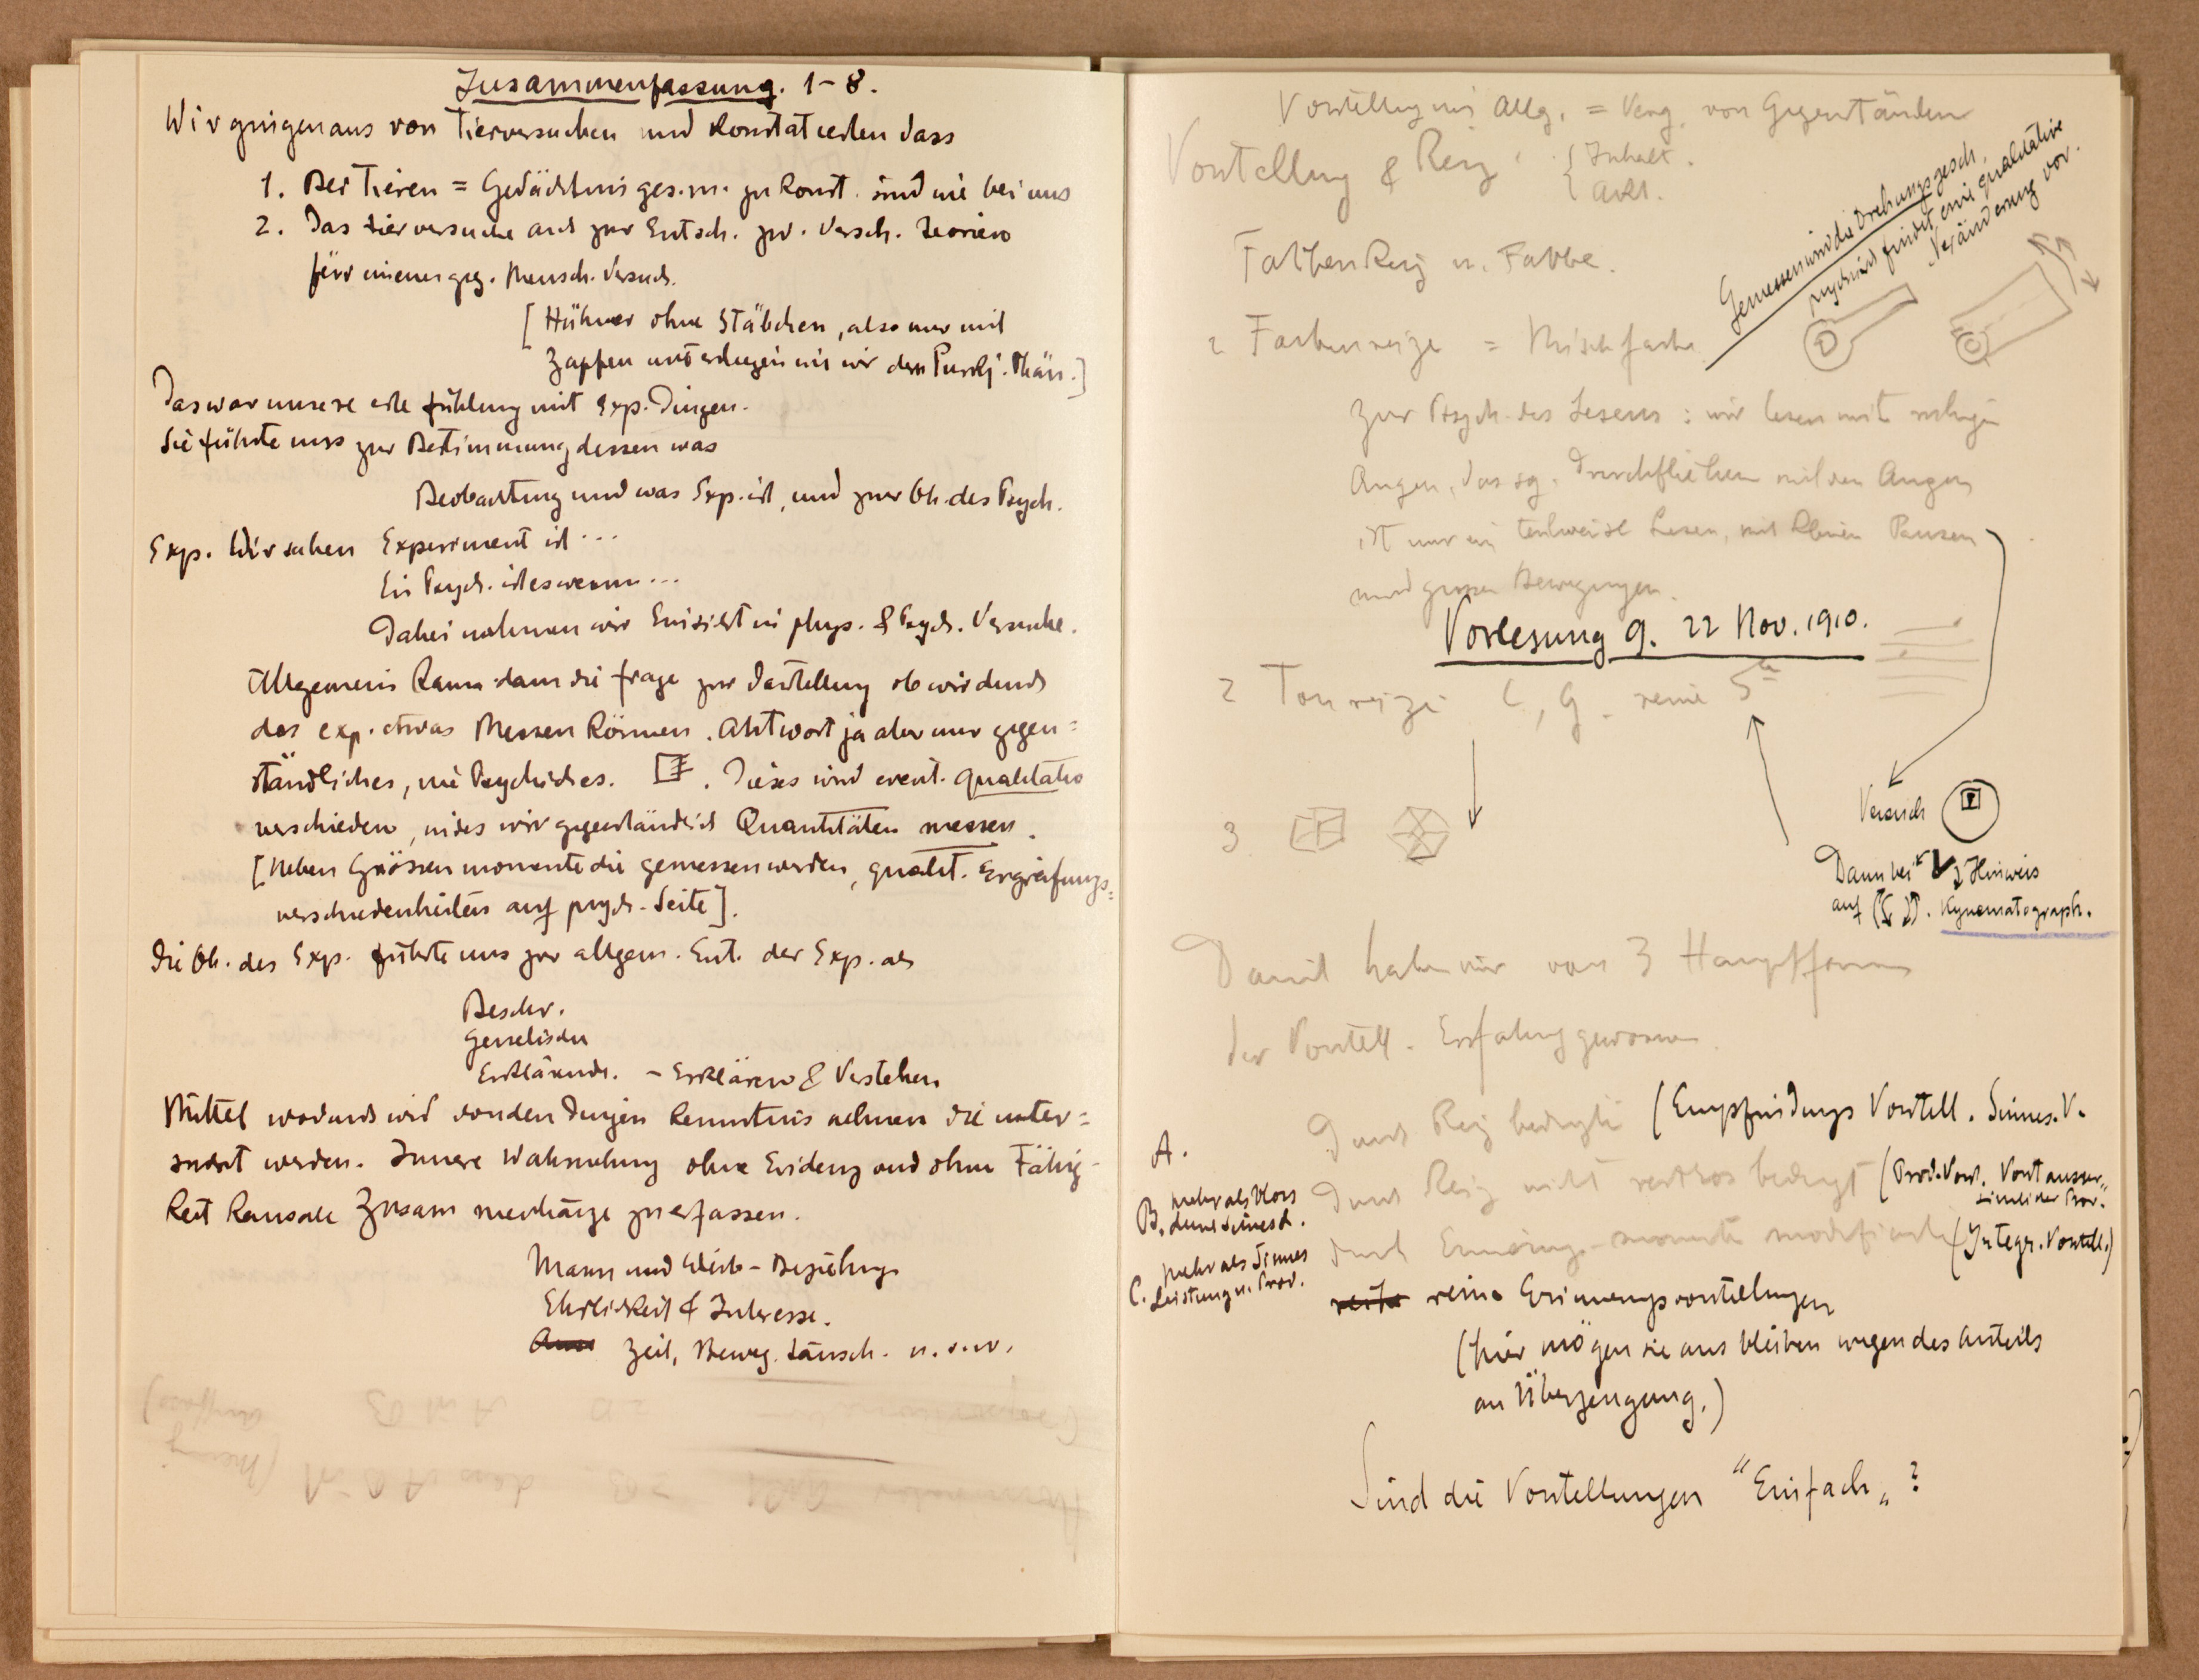 Zusammenfassung. 1-8.
Wir gingen aus von Tierversuchen und konstatierten dass
1. Bei Tieren = Gedächtnis ges. m. zu konst. sind wie bei uns
2. Das tierversuche auch zur Entsch. zw. versch. Teorien
für einen geg. Mensch. Versuch.
[Hühner ohne Stäbchen, also nur mit
Zapfen unterliegen wie wir dem Purkj. Phän.]
Das war unsere erste fühlung mit Exp. Dingen.
Sie führte uns zur Bestimmung dessen was
Beobachtung und was Exp. ist, und zur Gh. des Psych.
Exp. Wir sahen Experiment ist ...
Ein Psych. ist es wenn ...
Dabei nahmen wir Einsicht in phys. & Psych. Versuche.
Allgemein kam dann die frage zur Darstellung ob wir durch
das exp. etwas Messen können. Antwort ja aber nur gegen=
ständliches, nie Psychisches. . Dieses wird event. qualitativ
verschieden, indes wir gegenständlich Quantitäten messen.
[Neben Grössenmomente die gemessen werden, qualit. Ergreifungs=
verschiedenheiten auf psych. Seite].
Die Gh. des Exp. führte uns zur allgem. Eint. der Exp. als
Beschr.
Genetischer
Erklärende. - Erklären & Verstehen
Mittel wodurch wir von den Dingen Kenntnis nehmen die unter=
sucht werden. Innere Wahrnehmung ohne Evidenz und ohne Fähig-
keit Kausale Zusammenhänge zu erfassen.
Mann und Weib - Beziehung
Ehrlichkeit & Interesse.
Zeit, Beweg. täusch. u.s.w.
Vorstellung im Allg. = Verg. von Gegenständen
Vorstellung & Reiz { Inhalt.
Akt.
Gemessen wird die Drehungsgesch.
psychisch findet eine qualitative
Veränderung vor.
Farben Reiz u. Farbe.
2 Farbenreize = Mischfarbe
Zur Psych. des Lesens : wir lesen mit ruhigen
Augen, das sg. Durchfliehen mit den Augen
ist nur ein teilweise Lesen, mit kleinen Pausen
und grossen Bewegungen.
Vorlesung 9. 22 Nov. 1910.
2 Tonreize C, G. reine 5te
3.
Versuch
Dann bei Hinweis
auf . Kynematograph.
Damit haben wir von 3 Hauptformen
der Vorstell. Erfahrung gewonnen.
A. Durch Reiz bedingte (Empfindungs Vorstell. Sinnes. V.
B. mehr als bloss durch Sinnesd. Durch Reiz nicht restlos bedingt (Prod. Vorst. Vorst ausser„
sinnlicher Prov.
C. mehr als Sinnes Leistung u. Prod. durch Erinnerungsmomente modifizierte (Integr. Vorstell.)
reine Erinnerungsvorstellungen
(hier mögen sie aus bleiben wegen des Anteils
an Überzeugung.)
Sind die Vorstellungen "Einfach„?